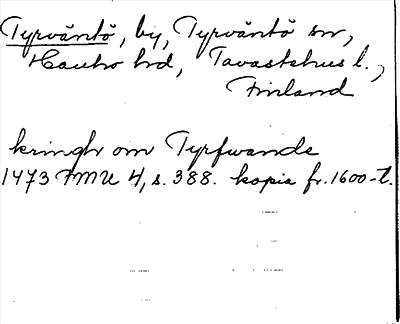 Tyrväntö, by, Tyrväntö sn,
Hauho hd, Tavastehus l.,
Finland
kringh om Tyrfwande
1473 FMU 4, s. 388. kopia fr. 1600-t.